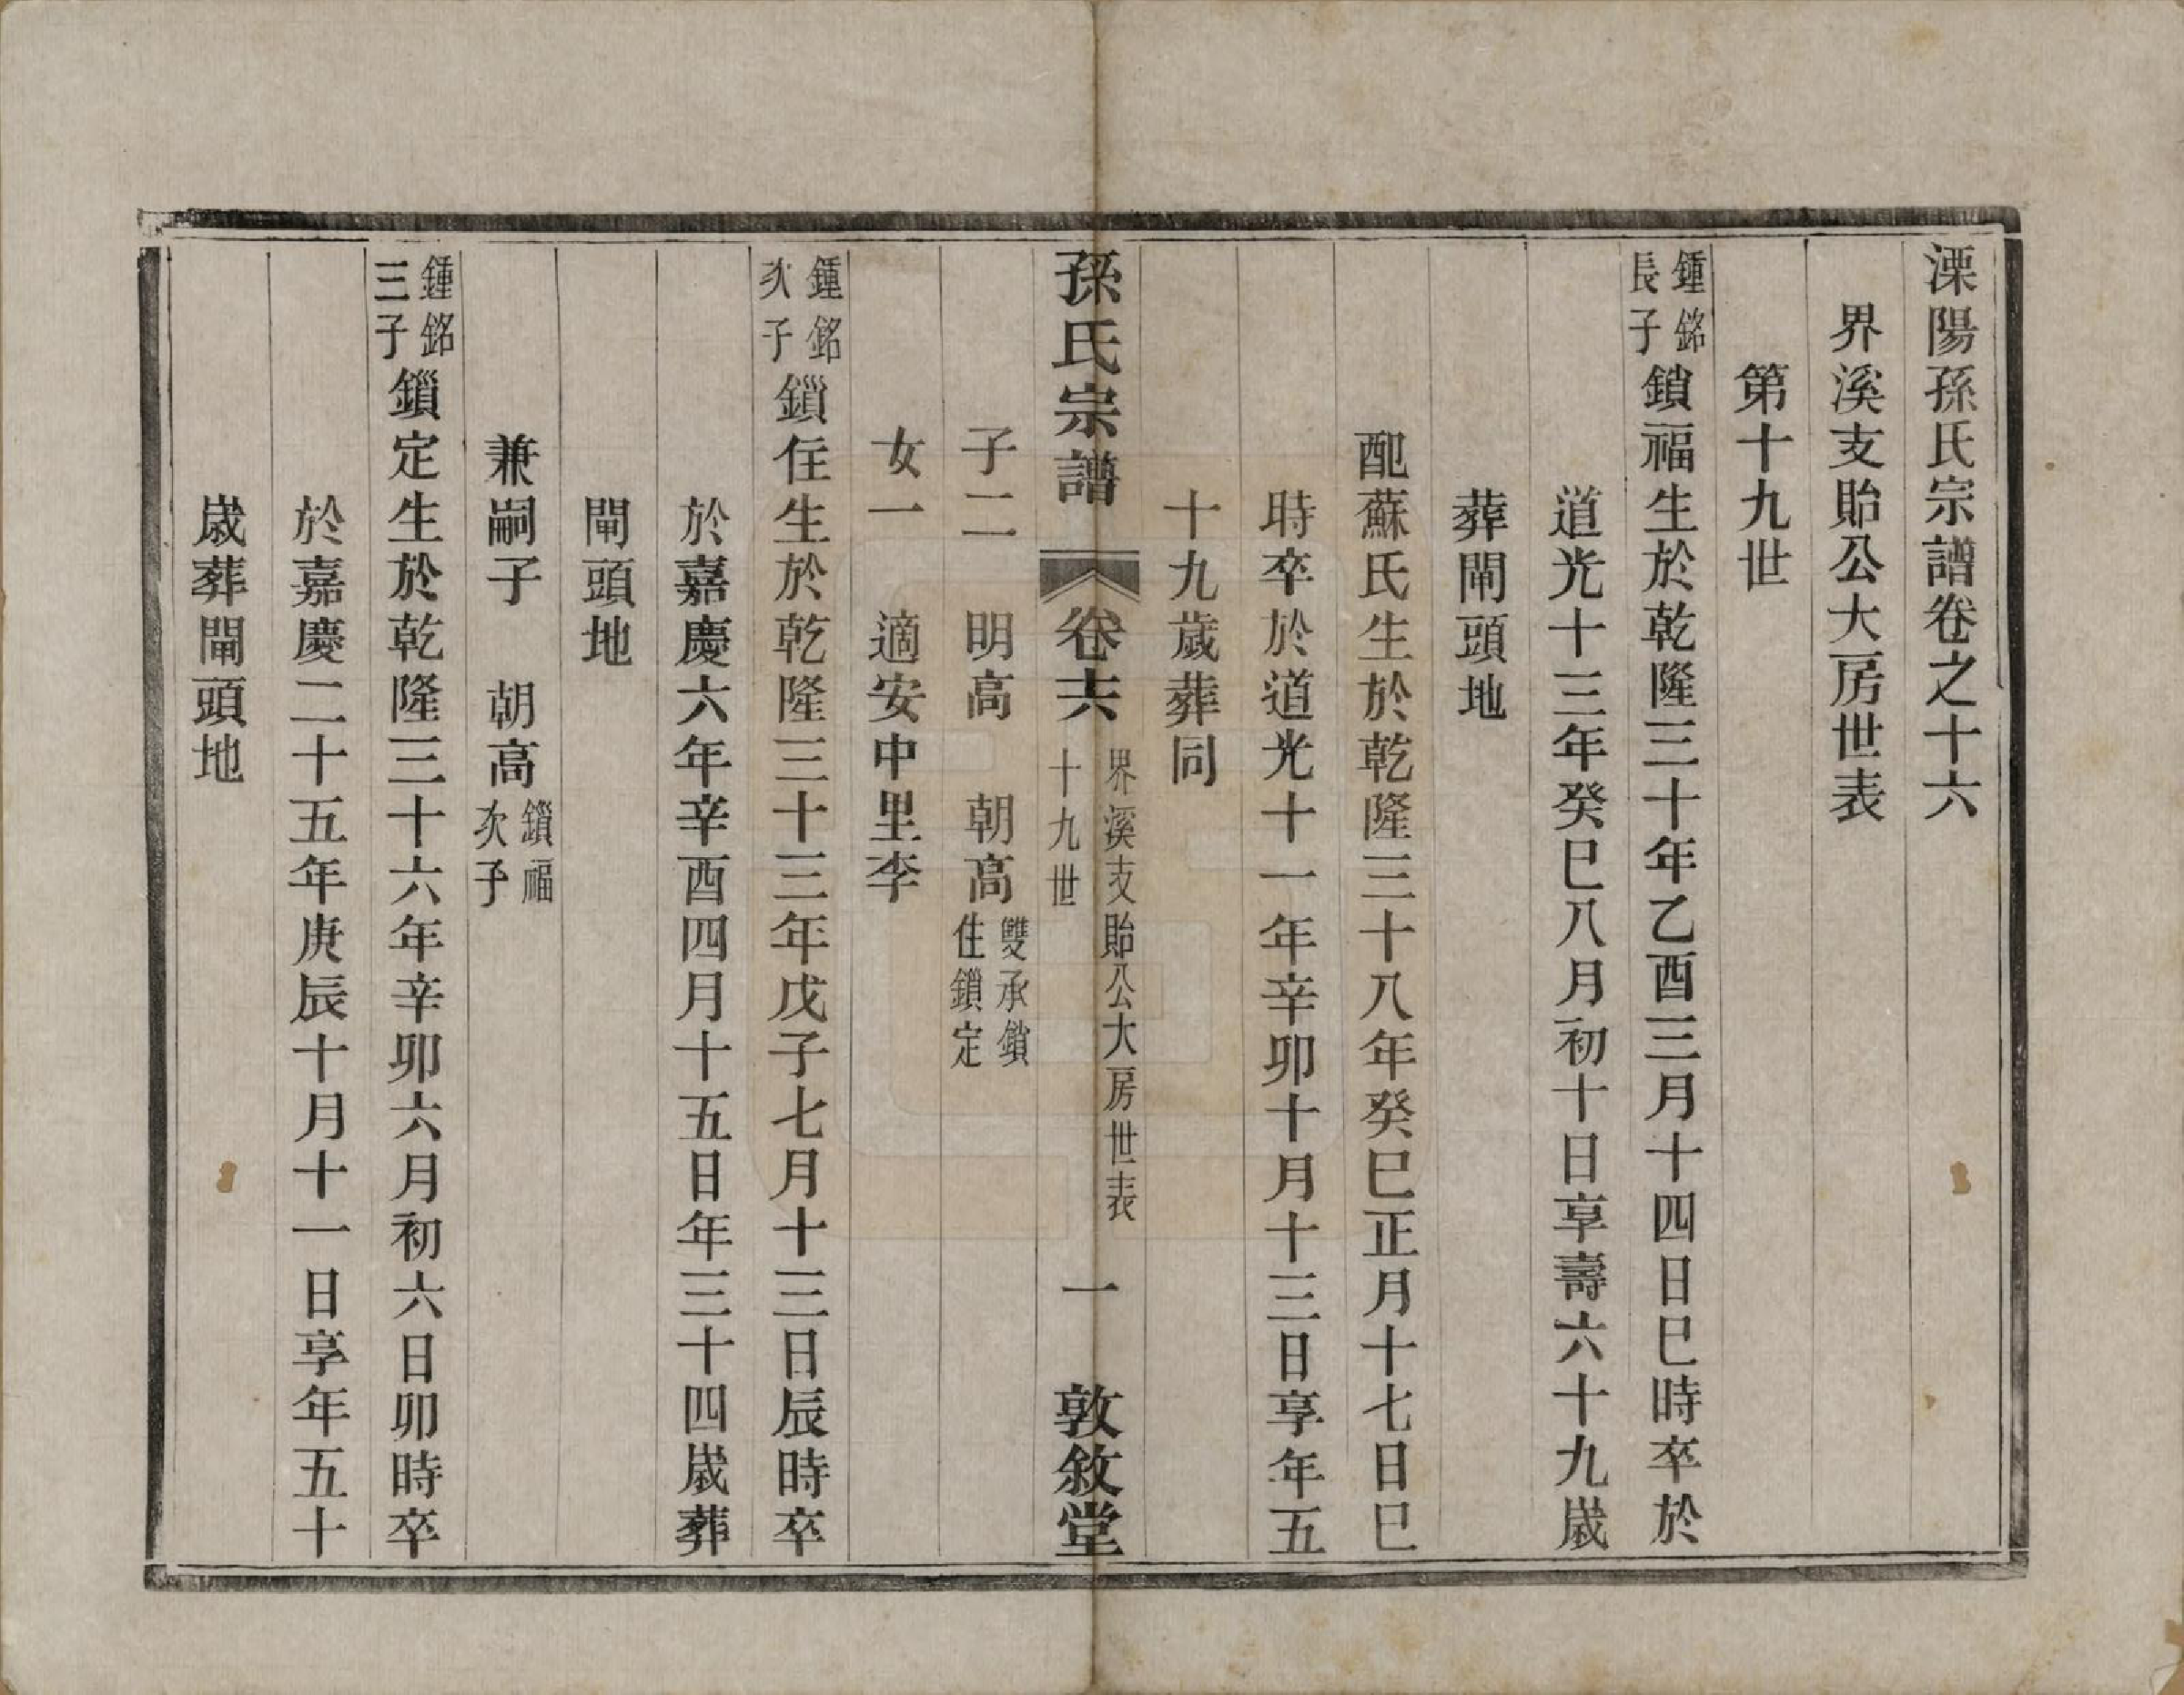 溧陽孫氏宗譜卷之十六
界溪支貽公大房世表
第十九世
鍾銘長子鎖福生於乾隆三十年乙酉三月十四日巳時卒於
道光十三年癸巳八月初十日享壽六十九歲
葬閘頭地
配蘇氏生於乾隆三十八年癸巳正月十七日巳
時卒於道光十一年辛卯十月十三日享年五
十九歲葬同
孫氏宗譜 卷十六 界溪支貽公大房世表 十九世 一 敦敘堂
子二 明高 朝高雙承鎖住鎖定
女一 適安中里李
鍾銘次子鎖住生於乾隆三十三年戊子七月十三日辰時卒
於嘉慶六年辛酉四月十五日年三十四歲葬
閘頭地
兼嗣子 朝高鎖福次子
鍾銘三子鎖定生於乾隆三十六年辛卯六月初六日卯時卒
於嘉慶二十五年庚辰十月十一日享年五十
歲葬閘頭地